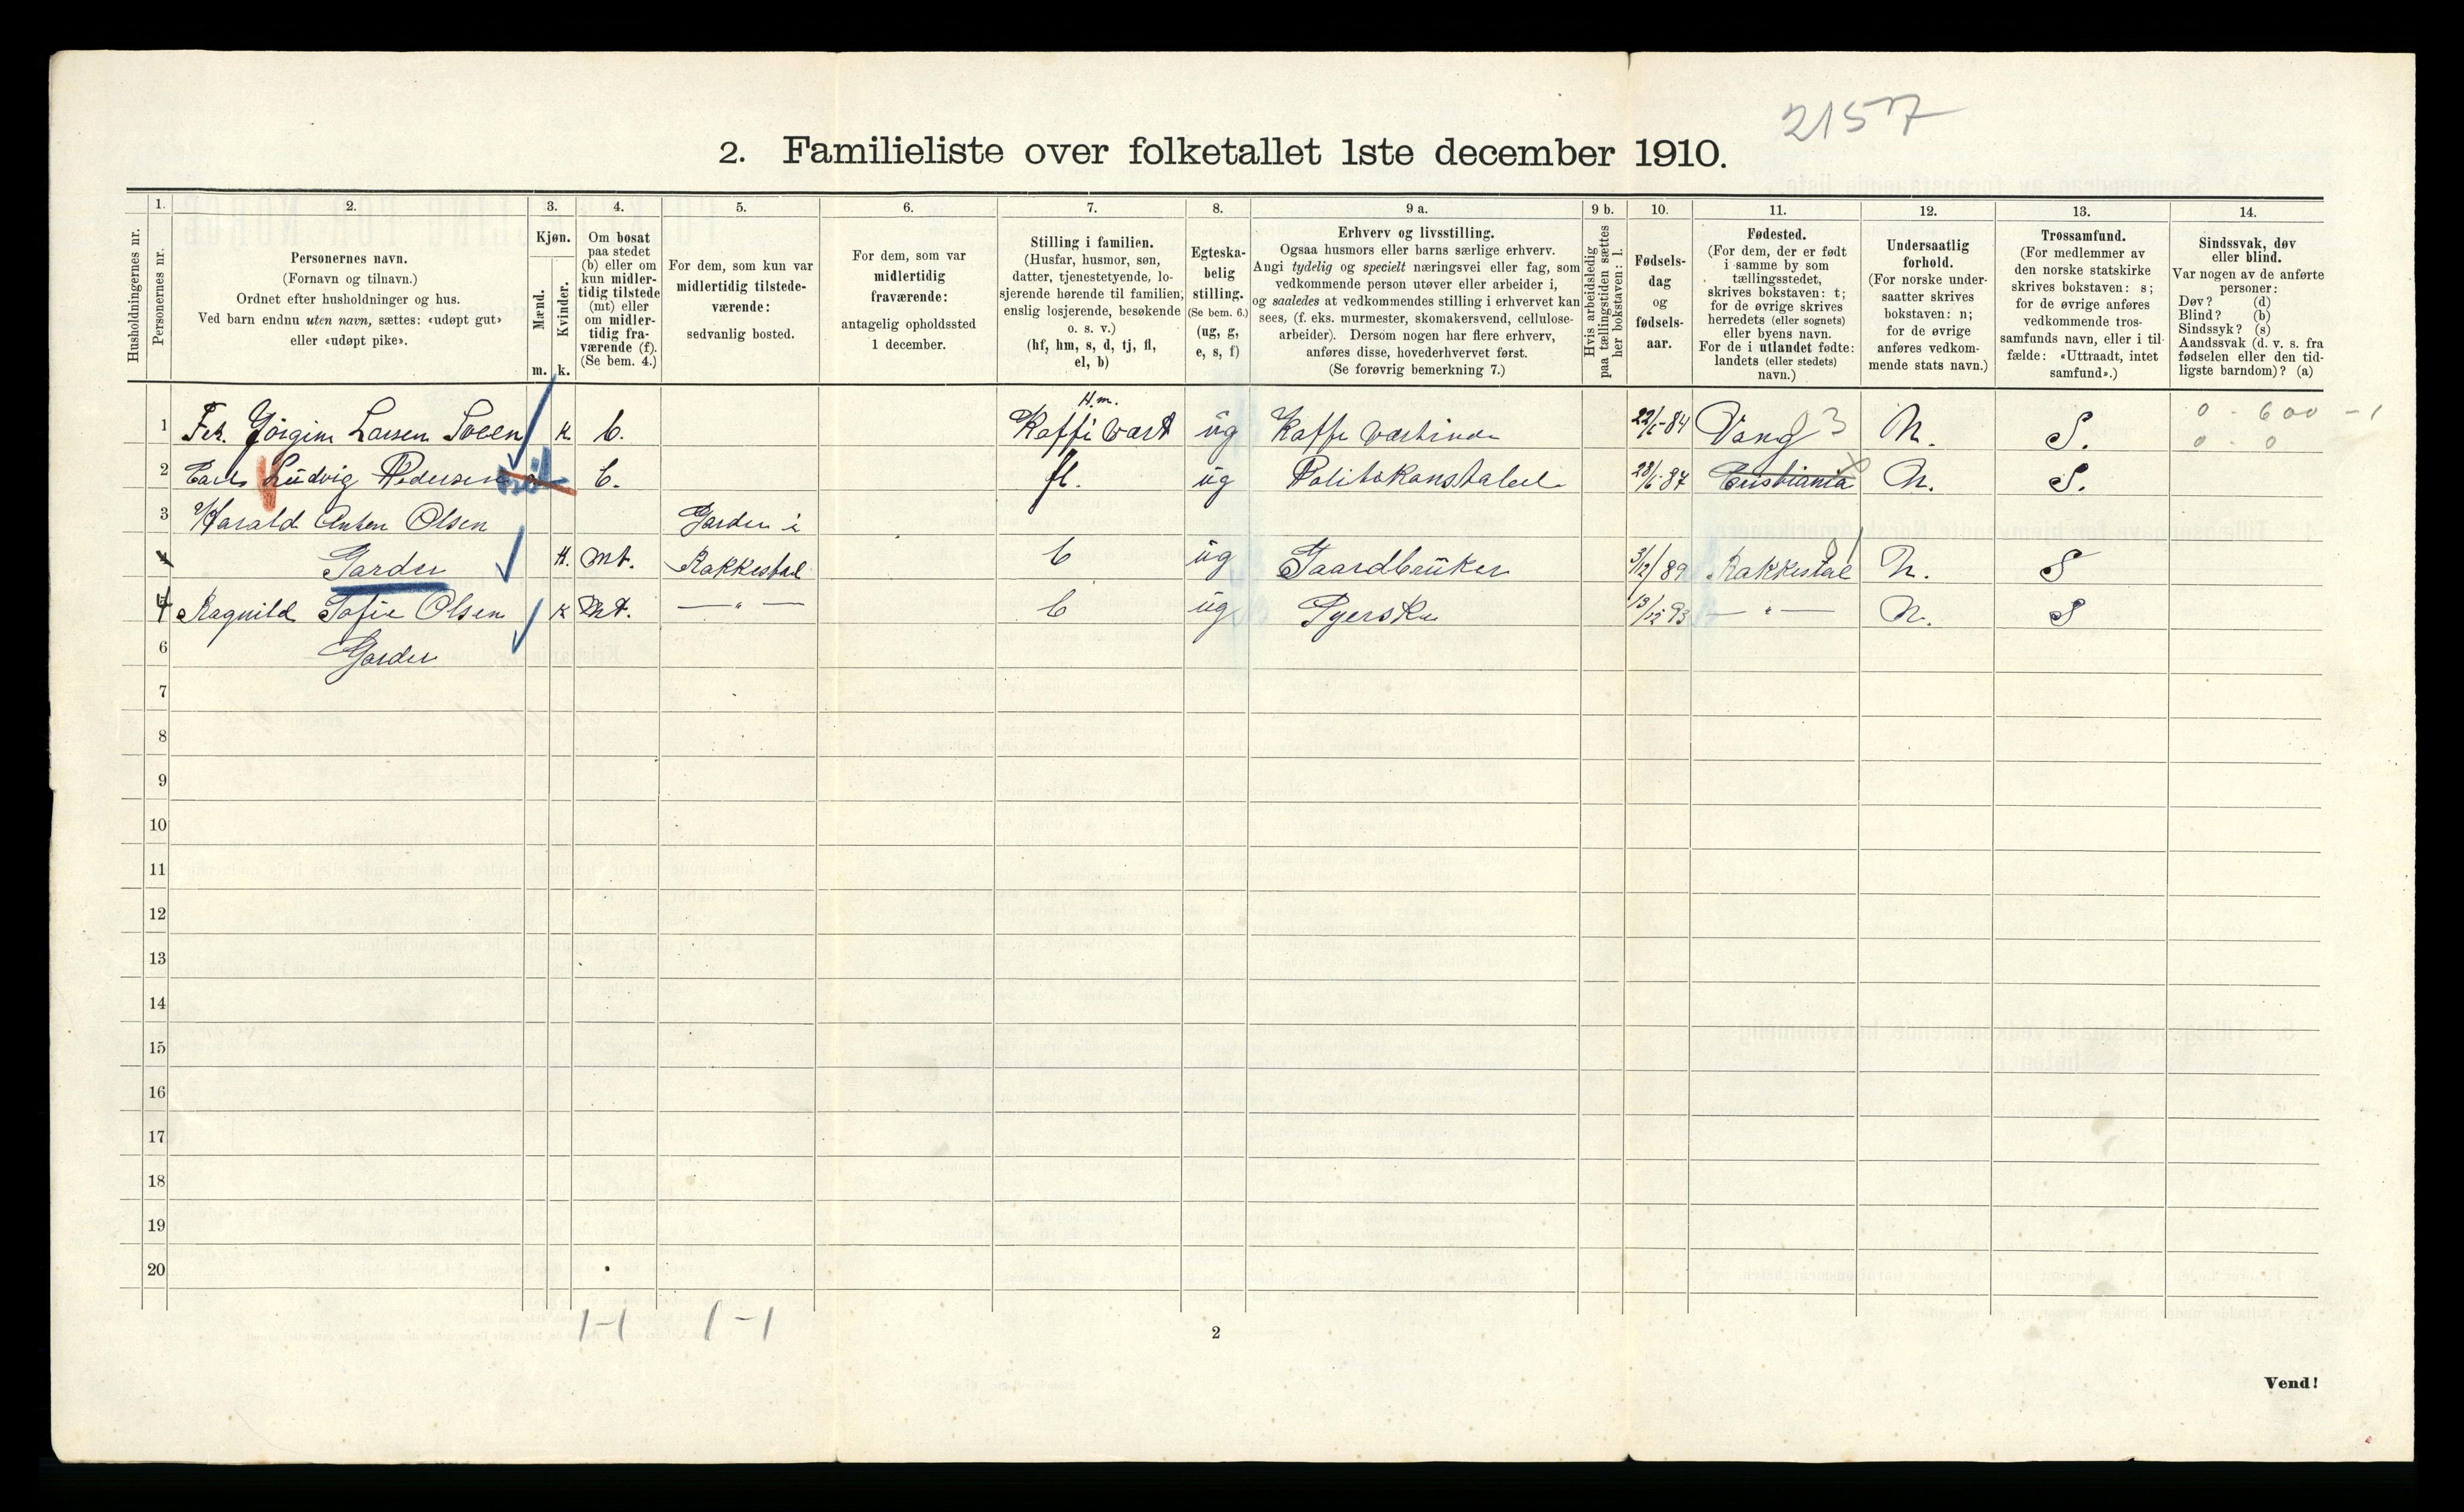 2157
2. Familieliste over folketallet 1ste december 1910.
Husholdningernes nr.
1.
Personernes nr.
2.
Personernes navn.
(Fornavn og tilnavn.)
Ordnet efter husholdninger og hus.
Ved barn endnu uten navn, sættes: «udøpt gut»
eller «udøpt pike».
3.
Kjøn.
Mænd.
Kvinder.
m. k.
4.
Om bosat
paa stedet
(b) eller om
kun midler-
tidig tilstede
(mt) eller
om midler-
tidig fra-
værende (f).
(Se bem. 4.)
5.
For dem, som kun var
midlertidig tilstede-
værende:
sedvanlig bosted.
6.
For dem, som var
midlertidig
fraværende:
antagelig opholdssted
1 december.
7.
Stilling i familien.
(Husfar, husmor, søn,
datter, tjenestetyende, lo-
sjerende hørende til familien,
enslig losjerende, besøkende
o. s. v.)
(hf, hm, s, d, tj, fl,
el, b)
8.
Egteska-
belig
stilling.
(Se bem. 6.)
(ug, g,
e, s, f)
9 a.
Erhverv og livsstilling.
Ogsaa husmors eller barns særlige erhverv.
Angi tydelig og specielt næringsvei eller fag, som
vedkommende person utøver eller arbeider i,
og saaledes at vedkommendes stilling i erhvervet kan
sees, (f. eks. murmester, skomakersvend, cellulose-
arbeider). Dersom nogen har flere erhverv,
anføres disse, hovederhvervet først.
(Se forøvrig bemerkning 7.)
9 b.
Hvis arbeidsledig
paa tællingstiden sættes
her bokstaven: l.
10.
Fødsels-
dag
og
fødsels-
aar.
11.
Fødested.
(For dem, der er født
i samme by som
tællingsstedet,
skrives bokstaven: t;
for de øvrige skrives
herredets (eller sognets)
eller byens navn.
For de i utlandet fødte:
landets (eller stedets)
navn.)
12.
Undersaatlig
forhold.
(For norske under-
saatter skrives
bokstaven: n;
for de øvrige
anføres vedkom-
mende stats navn.)
13.
Trossamfund.
(For medlemmer av
den norske statskirke
skrives bokstaven: s;
for de øvrige anføres
vedkommende tros-
samfunds navn, eller i til-
fælde: «Uttraadt, intet
samfund».)
14.
Sindssvak, døv
eller blind.
Var nogen av de anførte
personer:
Døv? (d)
Blind? (b)
Sindssyk? (s)
Aandssvak (d. v. s. fra
fødselen eller den tid-
ligste barndom)? (a)
H.m. 0 - 600 - 1
1 Frk. Jörgine Larsen Sveen k. b. Kaffi vært ug Kaffe værtinde 22/5-84 Vang 3 N. S. 0 - 0
2 Carl Ludvig Pedersen b. fl. ug Politikonstabel 28/6-87 Cristiania N. S.
3 Harald Anton Olsen Garder i
Garder mt. Rakkestad b ug Gaardbruker 31/12/89 Rakkestad 01 N. S
4 Ragnild Sofie Olsen k mt. — " — b ug Syerske 13/12 93 — " — N. S
6 Garder
7
8
9
10
11
12
13
14
15
16
17
18
19
20
1-1 1-1
2
Vend!